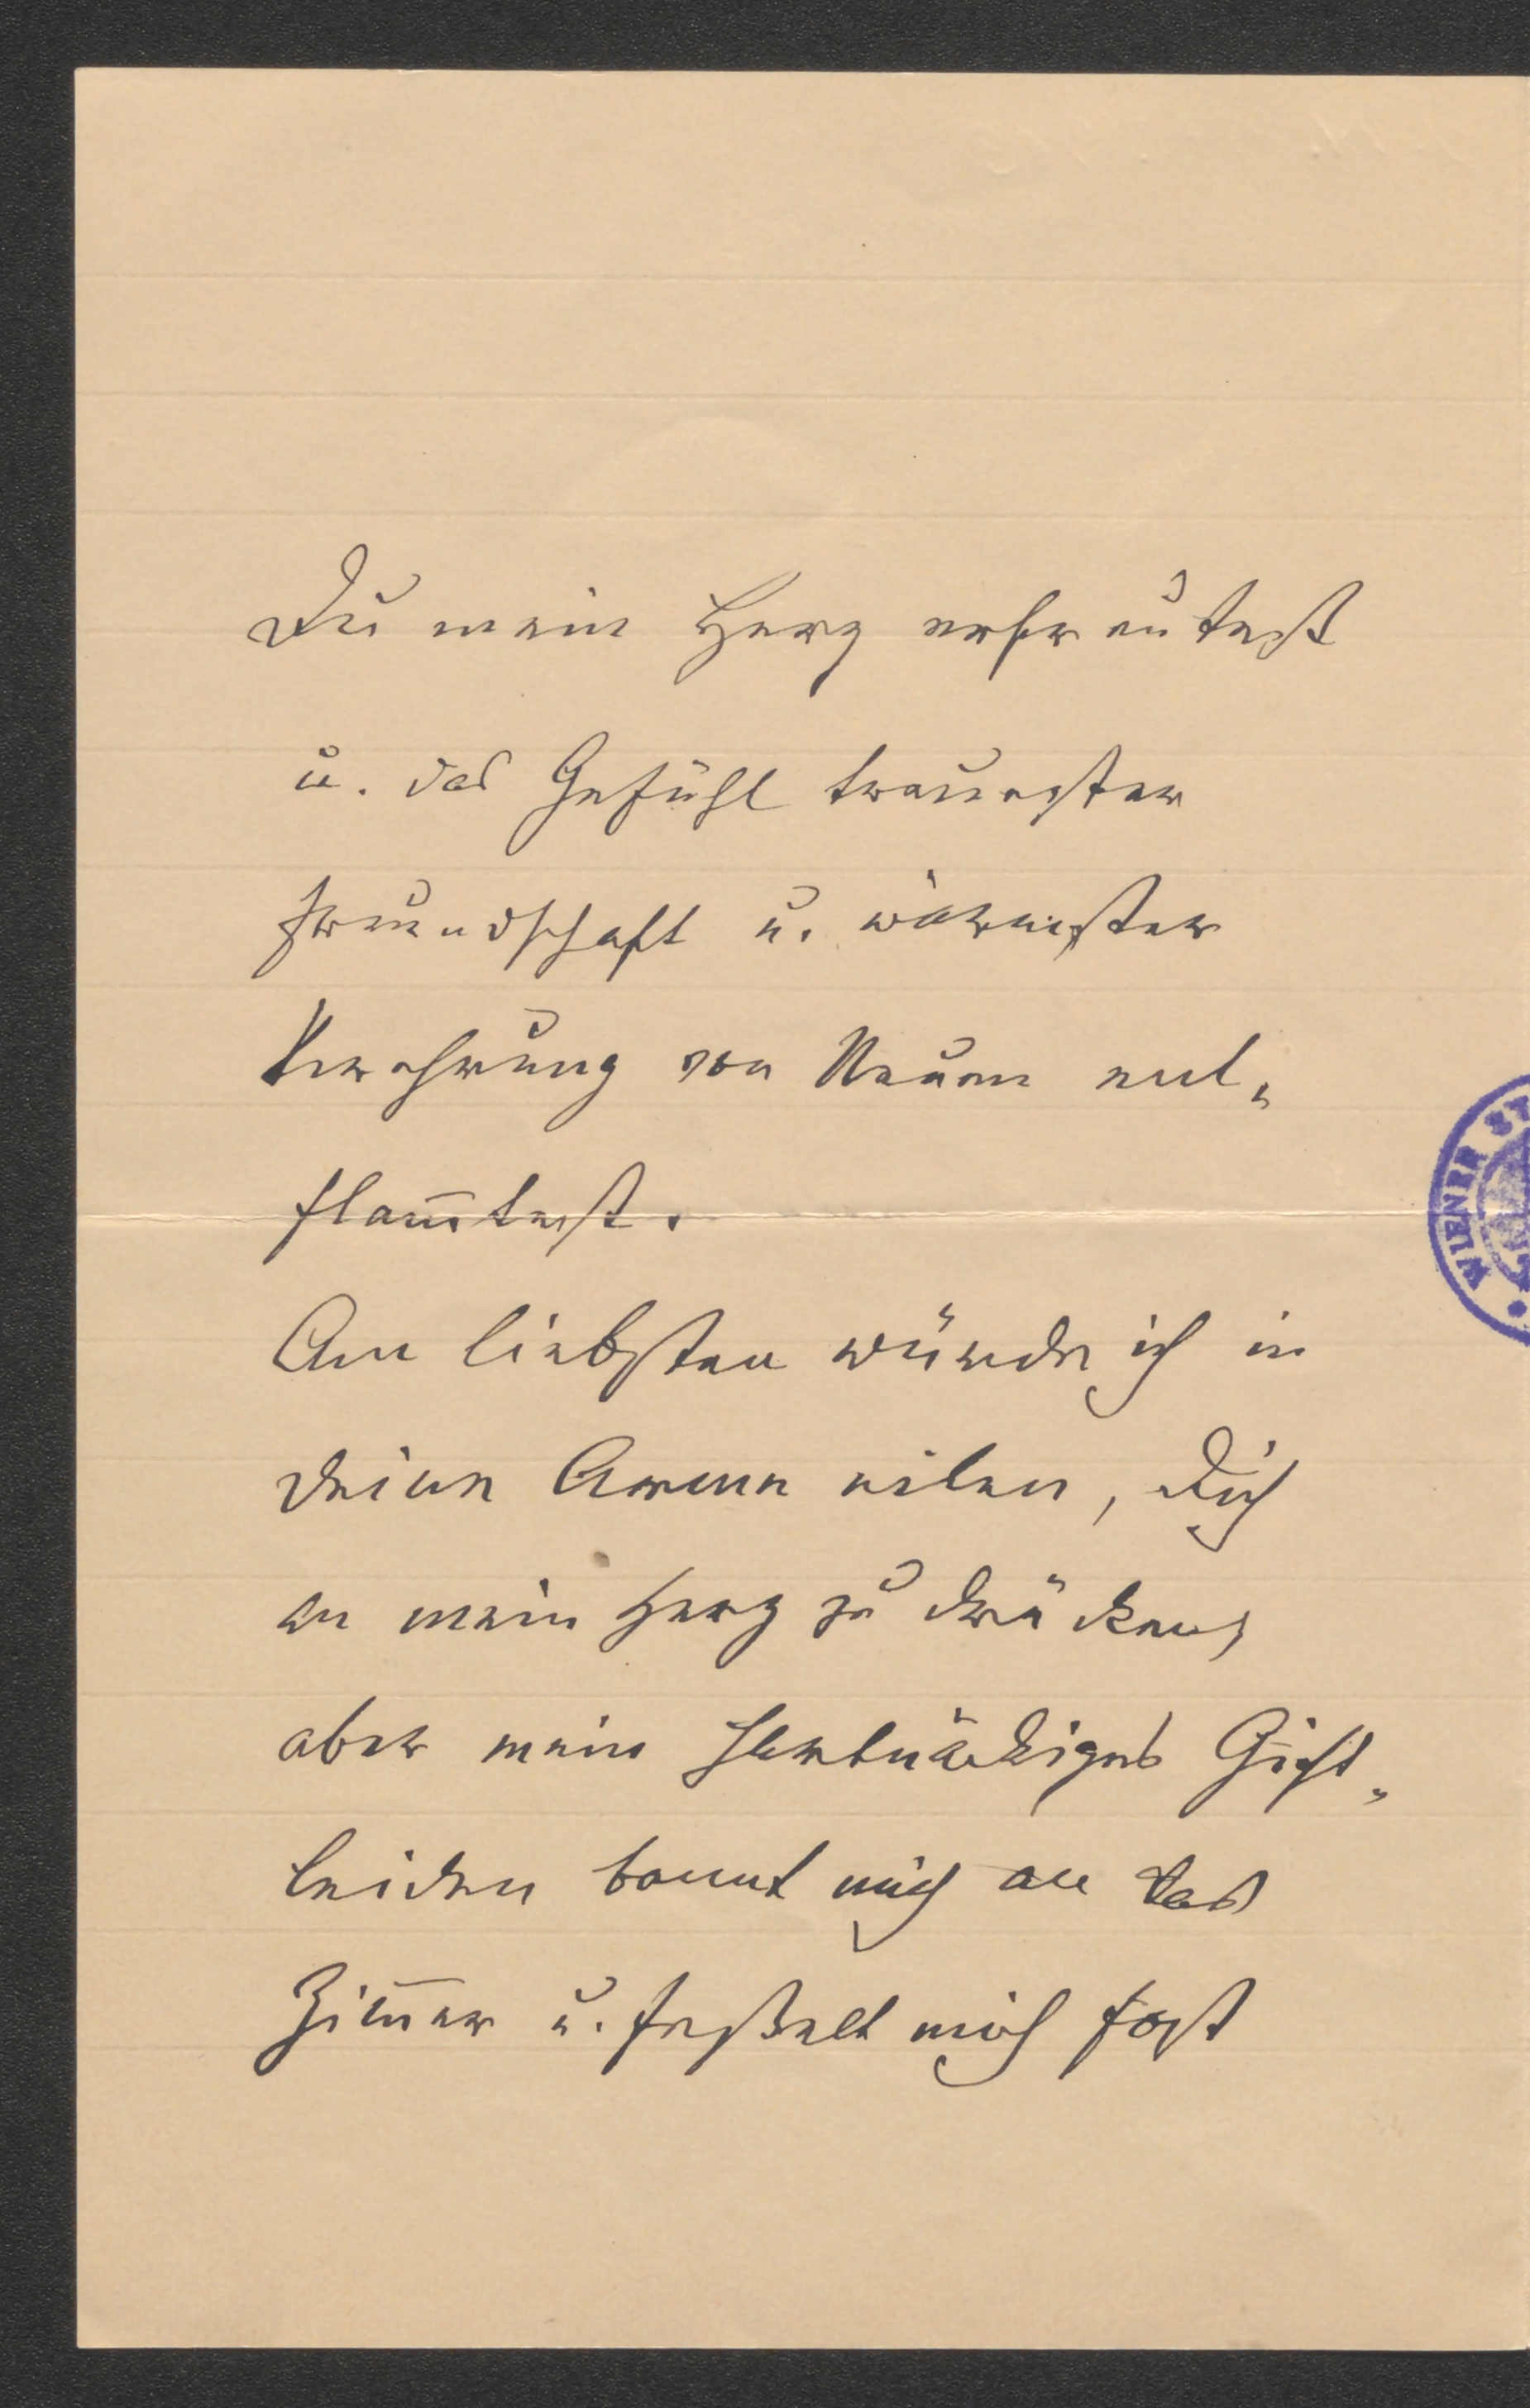 Du mein Herz erfreutest
u. das Gefühl treuester
Freundschaft u. wärmster
Verehrung von Neuem ent-
flam̅test.
Am liebsten würde ich in
Deine Arme eilen, Dich
an mein Herz zu drücken,
aber mein hartnäckiges Gicht-
leiden bannt mich an das
Zim̅er u. feßelt mich fast
WIENER ST